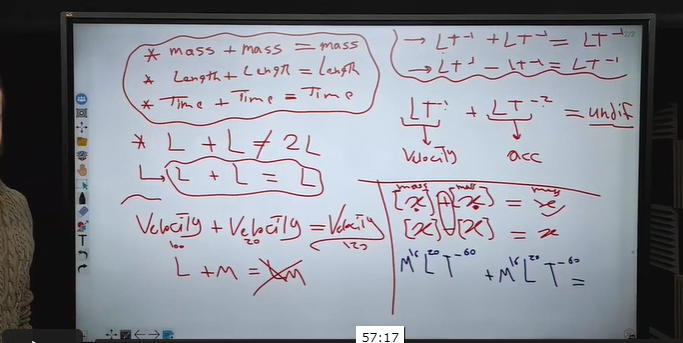 * mass + mass = mass
* Length + Length = Length
* Time + Time = Time
* L + L ≠ 2L
↳ L + L = L
Velocity + Velocity = Velocity
100 20 120
L + M = LM
→ LT⁻¹ + LT⁻¹ = LT⁻¹
→ LT⁻¹ - LT⁻¹ = LT⁻¹
LT⁻¹ + LT⁻² = undif
Velocity acc
mass mass mass
[x] + [x] = x
[x] - [x] = x
M¹⁶ L²⁰ T⁻⁶⁰ + M¹⁶ L²⁰ T⁻⁶⁰ =
T
57:17